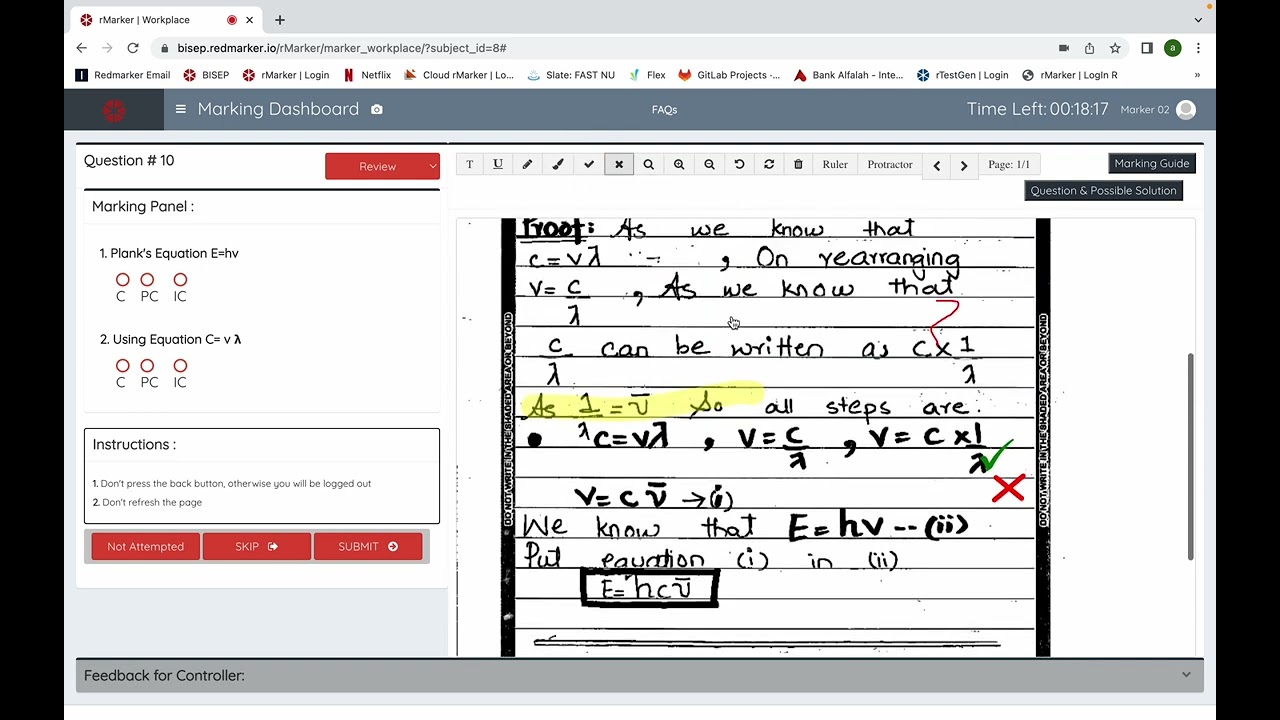 rMarker | Workplace
bisep.redmarker.io/rMarker/marker_workplace/?subject_id=8#
a
Redmarker Email BISEP rMarker | Login Netflix Cloud rMarker | Lo... Slate: FAST NU Flex GitLab Projects -... Bank Alfalah - Inte... rTestGen | Login rMarker | LogIn R »
Marking Dashboard FAQs Time Left: 00:18:17 Marker 02
Question # 10 Review
T U Ruler Protractor Page: 1/1 Marking Guide
Question & Possible Solution
Marking Panel :
1. Plank's Equation E=hv
C PC IC
2. Using Equation C= v λ
C PC IC
Instructions :
1. Don't press the back button, otherwise you will be logged out
2. Don't refresh the page
Not Attempted SKIP SUBMIT
Proof: As we know that
c=vλ , On rearranging
v= c/λ , As we know that
c/λ can be written as c×1/λ
As 1/λ = v̄ So all steps are.
• c=vλ , v=c/λ , v= c×1/λ
v= c v̄ →(i)
We know that E=hv --(ii)
Put equation (i) in (ii)
E= hcv̄
DO NOT WRITE IN THE SHADED AREA OR BEYOND
DO NOT WRITE IN THE SHADED AREA OR BEYOND
Feedback for Controller: